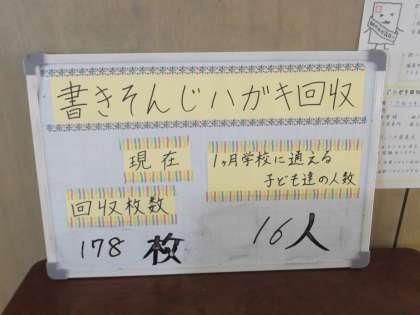 書きそんじハガキ回収
現在
回収枚数
178 枚
1ヶ月学校に通える
子ども達の人数
16人